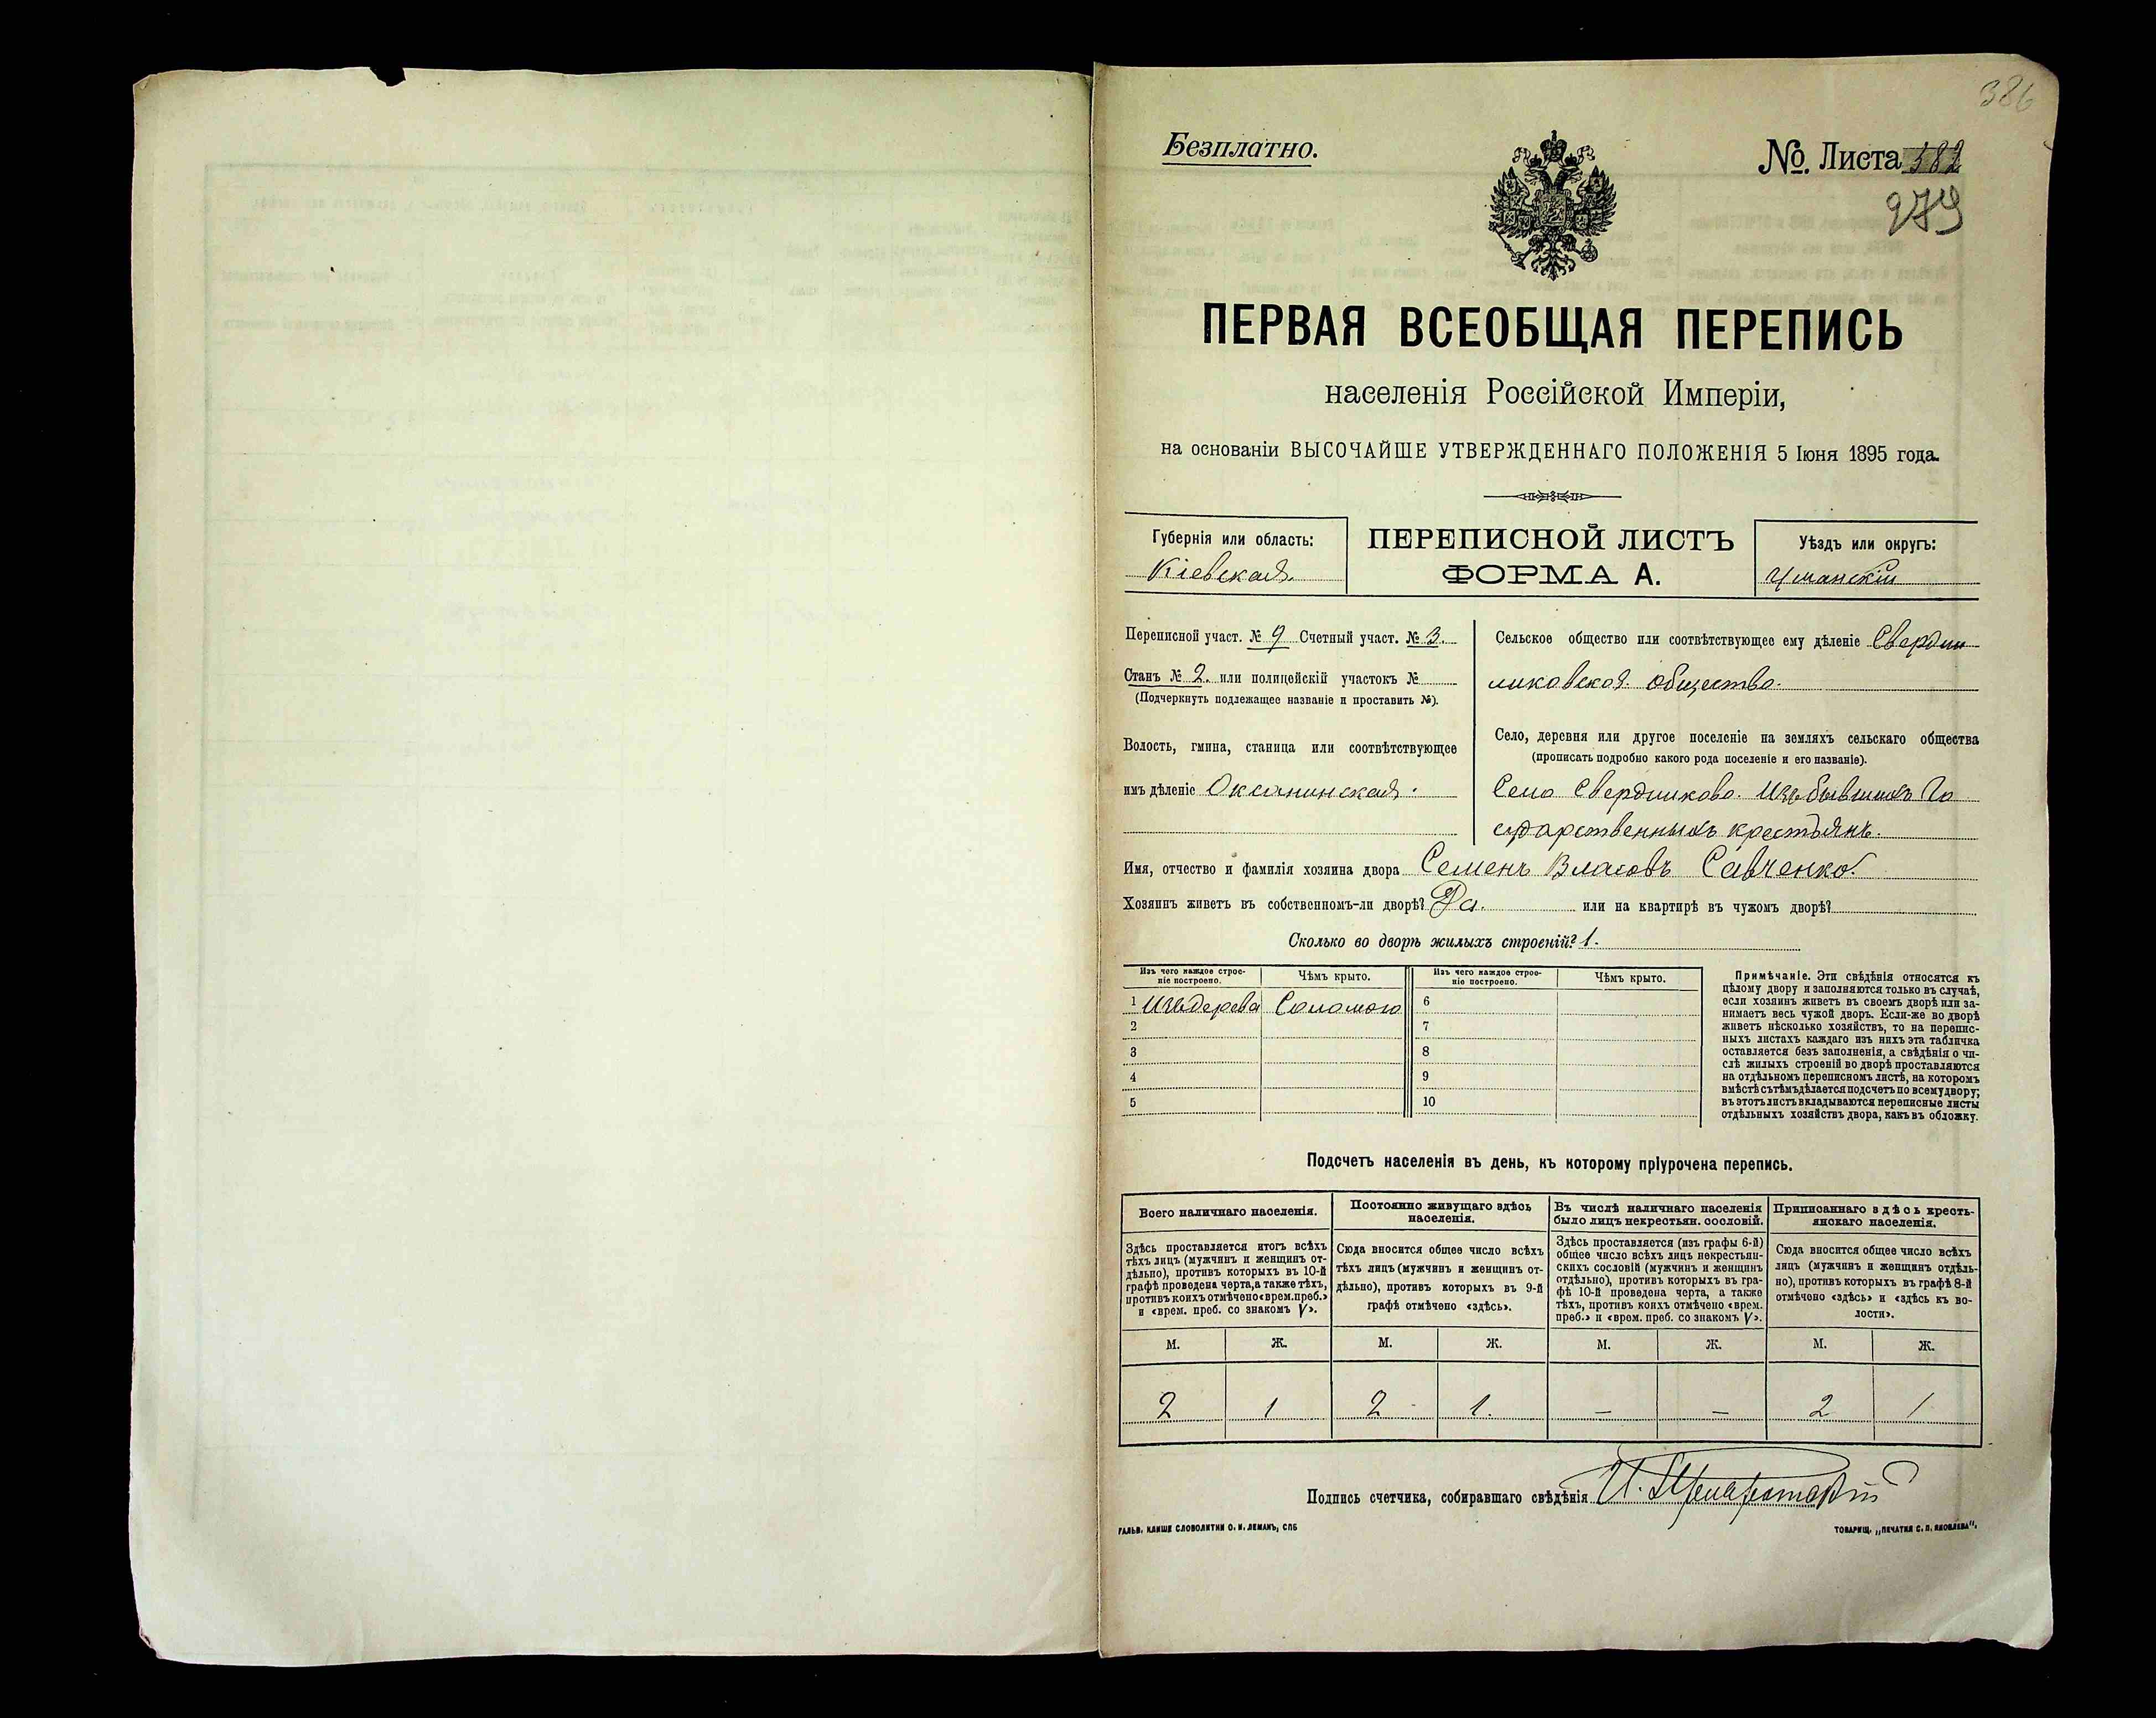 386
Безплатно.
№. Листа 382
279
ПЕРВАЯ ВСЕОБЩАЯ ПЕРЕПИСЬ
населенія Россійской Имперіи,
на основаніи ВЫСОЧАЙШЕ УТВЕРЖДЕННАГО ПОЛОЖЕНІЯ 5 Іюня 1895 года.
Губернія или область:
Кіевская.
ПЕРЕПИСНОЙ ЛИСТЪ
ФОРМА А.
Уѣздъ или округъ:
Уманскій
Переписной участ. № 9 Счетный участ. № 3.
Станъ № 2. или полицейскій участокъ №
(Подчеркнуть подлежащее названіе и проставить №).
Волость, гмина, станица или соотвѣтствующее
имъ дѣленіе Оксанинская.
Сельское общество или соотвѣтствующее ему дѣленіе Свердли
ликовское общество.
Село, деревня или другое поселеніе на земляхъ сельскаго общества
(прописать подробно какого рода поселеніе и его названіе).
Село Свердликово. Изъ бывшихъ Го
сударственныхъ крестьянъ.
Имя, отчество и фамилія хозяина двора Семенъ Власовъ Савченко.
Хозяинъ живетъ въ собственномъ-ли дворѣ? Да. или на квартирѣ въ чужомъ дворѣ?
Сколько во дворѣ жилыхъ строеній? 1.
Изъ чего каждое строе-
ніе построено.
Чѣмъ крыто.
Изъ чего каждое строе-
ніе построено.
Чѣмъ крыто.
1 Изъ дерева Соломою 6
2 7
3 8
4 9
5 10
Примѣчаніе. Эти свѣдѣнія относятся къ
цѣлому двору и заполняются только въ случаѣ,
если хозяинъ живетъ въ своемъ дворѣ или за-
нимаетъ весь чужой дворъ. Если-же во дворѣ
живетъ нѣсколько хозяйствъ, то на перепис-
ныхъ листахъ каждаго изъ нихъ эта табличка
оставляется безъ заполненія, а свѣдѣнія о чи-
слѣ жилыхъ строеній во дворѣ проставляются
на отдѣльномъ переписномъ листѣ, на которомъ
вмѣстѣ съ тѣмъ дѣлается подсчетъ по всему двору;
въ этотъ листъ вкладываются переписные листы
отдѣльныхъ хозяйствъ двора, какъ въ обложку.
Подсчетъ населенія въ день, къ которому пріурочена перепись.
Всего наличнаго населенія.
Здѣсь проставляется итогъ всѣхъ
тѣхъ лицъ (мужчинъ и женщинъ от-
дѣльно), противъ которыхъ въ 10-й
графѣ проведена черта, а также тѣхъ,
противъ коихъ отмѣчено «врем. преб.»
и «врем. преб. со знакомъ V».
Постоянно живущаго здѣсь
населенія.
Сюда вносится общее число всѣхъ
тѣхъ лицъ (мужчинъ и женщинъ от-
дѣльно), противъ которыхъ въ 9-й
графѣ отмѣчено «здѣсь».
Въ числѣ наличнаго населенія
было лицъ некрестьян. сословій.
Здѣсь проставляется (изъ графы 6-й)
общее число всѣхъ лицъ некрестьян-
скихъ сословій (мужчинъ и женщинъ
отдѣльно), противъ которыхъ въ гра-
фѣ 10-й проведена черта, а также
тѣхъ, противъ коихъ отмѣчено «врем.
преб.» и «врем. преб. со знакомъ V».
Приписаннаго здѣсь кресть-
янскаго населенія.
Сюда вносится общее число всѣхъ
лицъ (мужчинъ и женщинъ отдѣль-
но), противъ которыхъ въ графѣ 8-й
отмѣчено «здѣсь» и «здѣсь къ во-
лости».
М. Ж. М. Ж. М. Ж. М. Ж.
2 1 2 1. — — 2 1
Подпись счетчика, собиравшаго свѣдѣнія
ГАЛЬВ. КЛИШЕ СЛОВОЛИТНИ О. И. ЛЕМАНЪ, СПБ
ТОВАРИЩ. „ПЕЧАТНЯ С. П. ЯКОВЛЕВА".